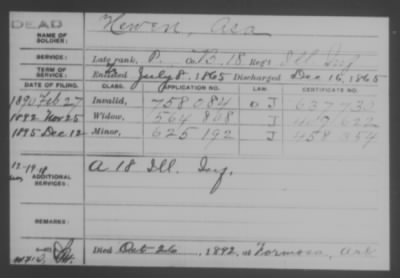 DEAD
NAME OF SOLDIER: Hewen, Asa
SERVICE: Late rank, P. Co. B. 18 Reg't Ill Inf
TERM OF SERVICE: Enlisted July 8, 1865 Discharged Dec 16, 1865
DATE OF FILING. CLASS. APPLICATION NO. LAW. CERTIFICATE NO.
1890 Feb 27 Invalid, 758 084 J 637 730
1892 Nov 25 Widow, 564 868 J 622
1895 Dec 12 Minor, 625 192 J 458 354
ADDITIONAL SERVICES: A 18 Ill. Inf.
REMARKS:
Died Oct 26, 1892, at Formosa, Ark